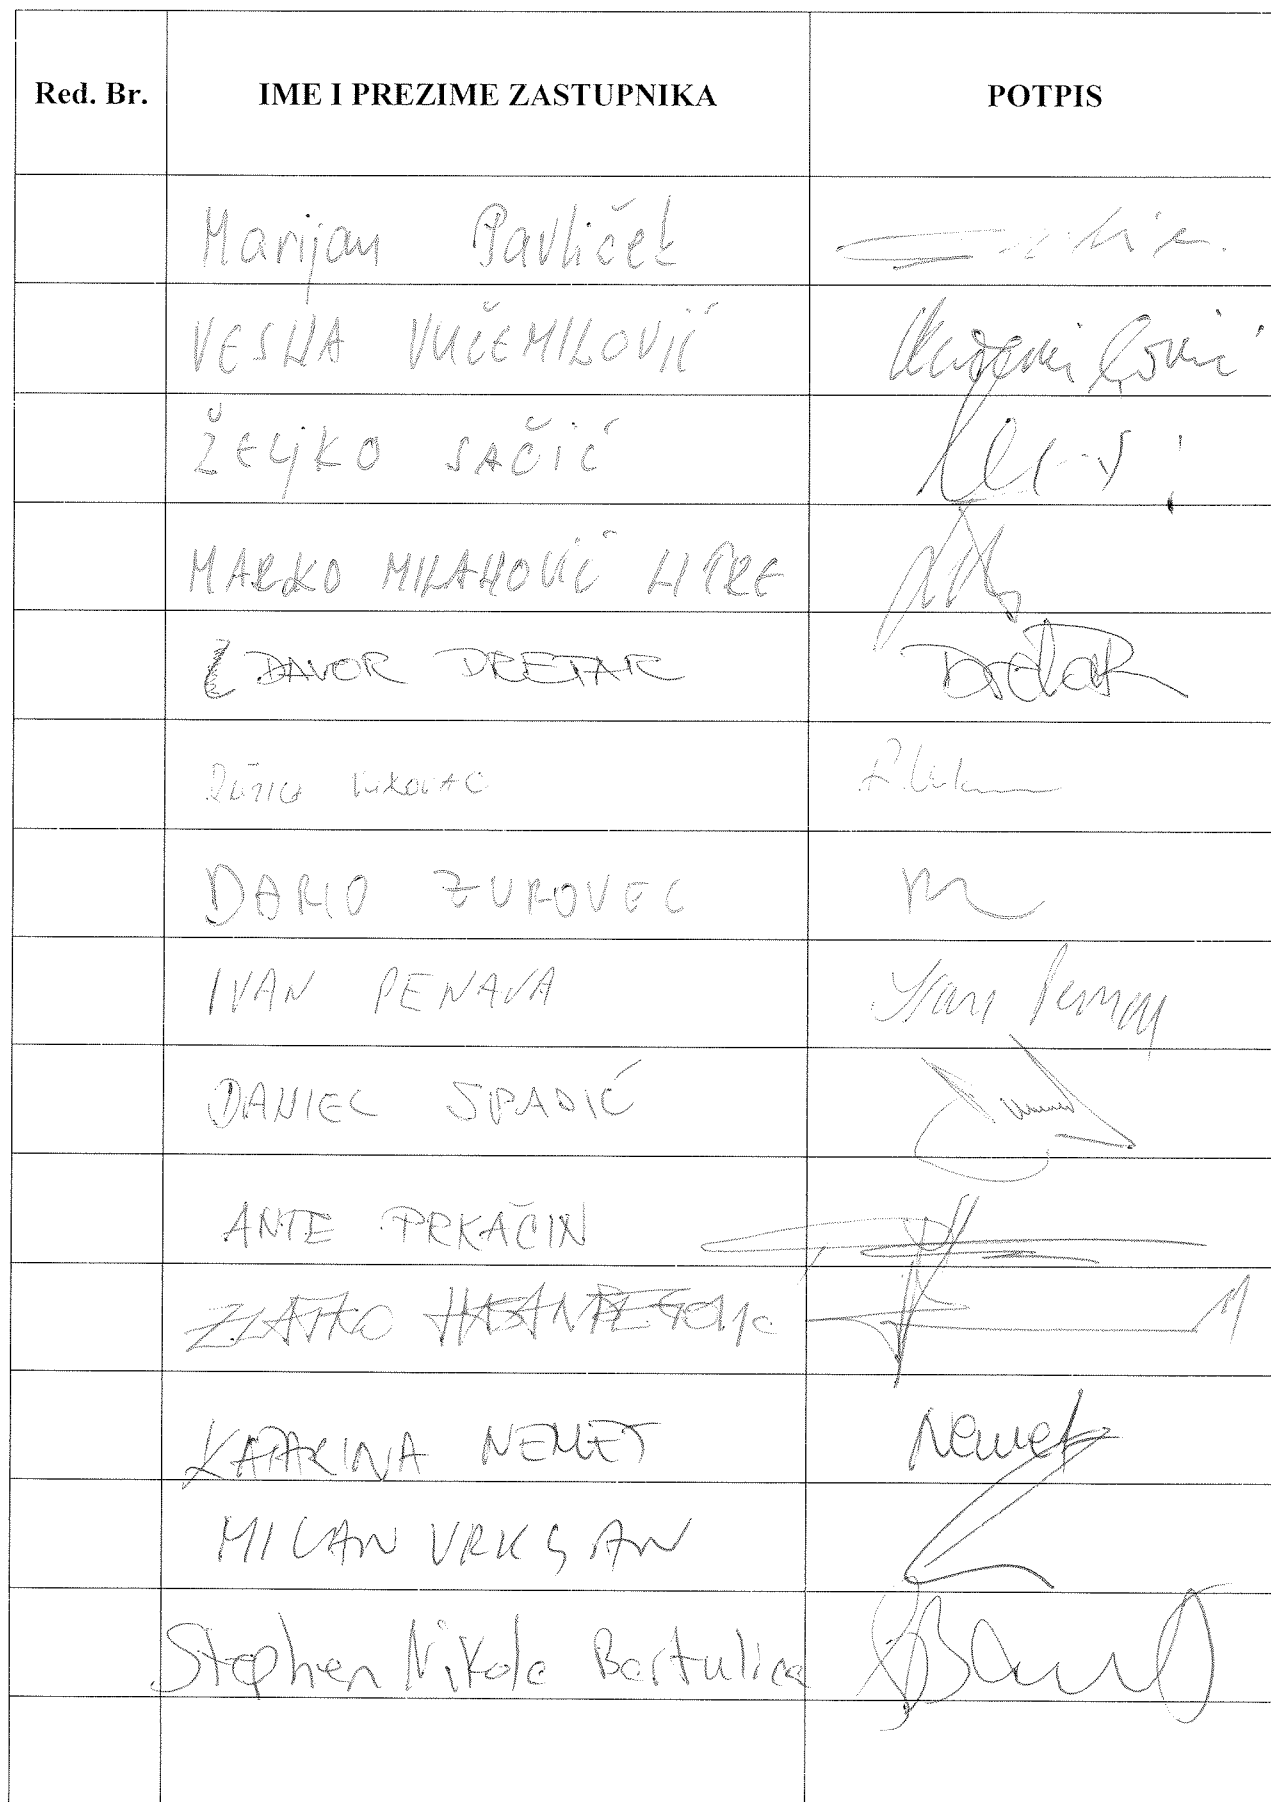 Red. Br. IME I PREZIME ZASTUPNIKA POTPIS
Marijan Pavliček
VESNA VUČEMILOVIĆ
ŽELJKO SAČIĆ
MARKO MILANOVIĆ LITRE
DAVOR DRETAR Dretar
RUŽICA VUKOVAC
DARIO ZUROVEC
IVAN PENAVA Ivan Penava
DANIEL SPAJIĆ
ANTE PRKAČIN
ZLATKO HASANBEGOVIĆ
KATARINA NEMET Nemet
MILAN VRKLJAN
Stephen Nikola Bartulica